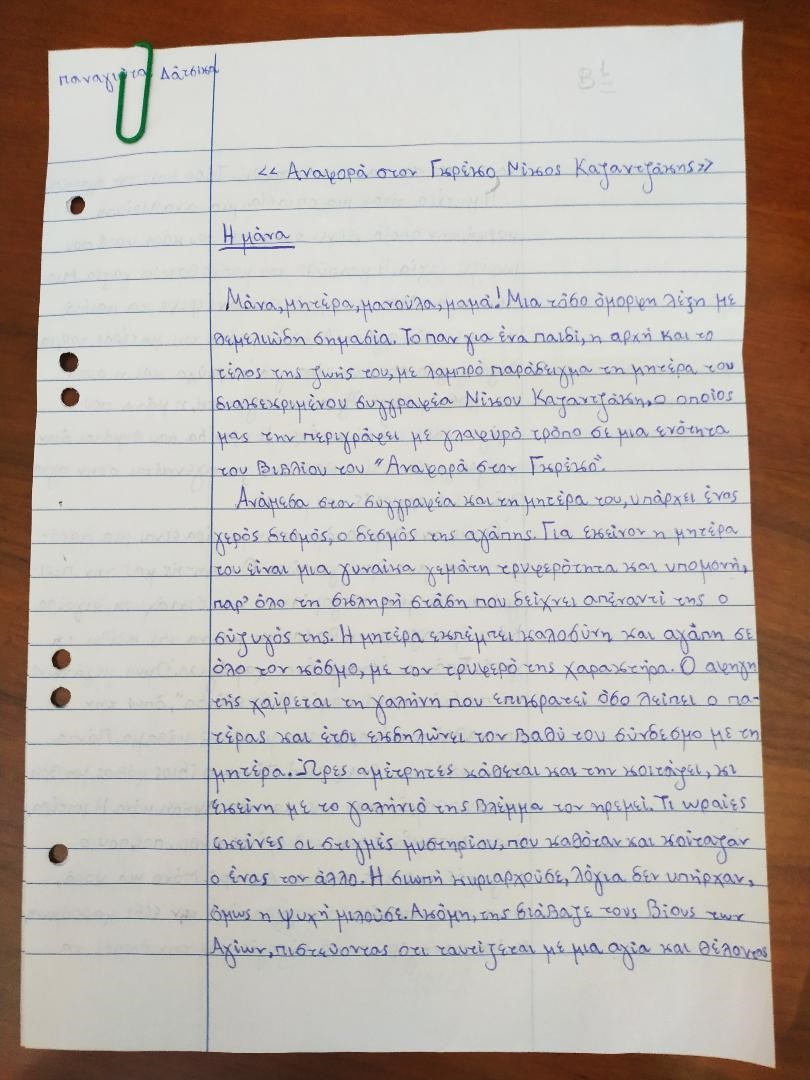 Παναγιώτα Δάτσικα
Β1
<< Αναφορά στον Γκρέκο Νίκος Καζαντζάκης>>
Η μάνα
Μάνα, μητέρα, μανούλα, μαμά! Μια τόσο όμορφη λέξη με
θεμελιώδη σημασία. Το παν για ένα παιδί, η αρχή και το
τέλος της ζωής του, με λαμπρό παράδειγμα τη μητέρα του
διακεκριμένου συγγραφέα Νίκου Καζαντζάκη, ο οποίος
μας την περιγράφει με γλαφυρό τρόπο σε μια ενότητα
του βιβλίου του "Αναφορά στον Γκρέκο".
Ανάμεσα στον συγγραφέα και τη μητέρα του, υπάρχει ένας
γερός δεσμός, ο δεσμός της αγάπης. Για εκείνον η μητέρα
του είναι μια γυναίκα γεμάτη τρυφερότητα και υπομονή,
παρ' όλο τη σκληρή στάση που δείχνει απέναντί της ο
σύζυγός της. Η μητέρα εκπέμπει καλοσύνη και αγάπη σε
όλο τον κόσμο, με τον τρυφερό της χαρακτήρα. Ο αφηγη
τής χαίρεται τη γαλήνη που επικρατεί όσο λείπει ο πα-
τέρας και έτσι εκδηλώνει τον βαθύ του σύνδεσμο με τη
μητέρα. Ώρες αμέτρητες κάθεται και την κοιτάζει, κι
εκείνη με το γαλήνιό της βλέμμα τον ηρεμεί. Τι ωραίες
εκείνες οι στιγμές μυστηρίου, που καθόταν και κοίταζαν
ο ένας τον άλλο. Η σιωπή κυριαρχούσε, λόγια δεν υπήρχαν,
όμως η ψυχή μιλούσε. Ακόμη, της διάβαζε τους βίους των
Αγίων, πιστεύοντας ότι ταυτίζεται με μια αγία και θέλοντας